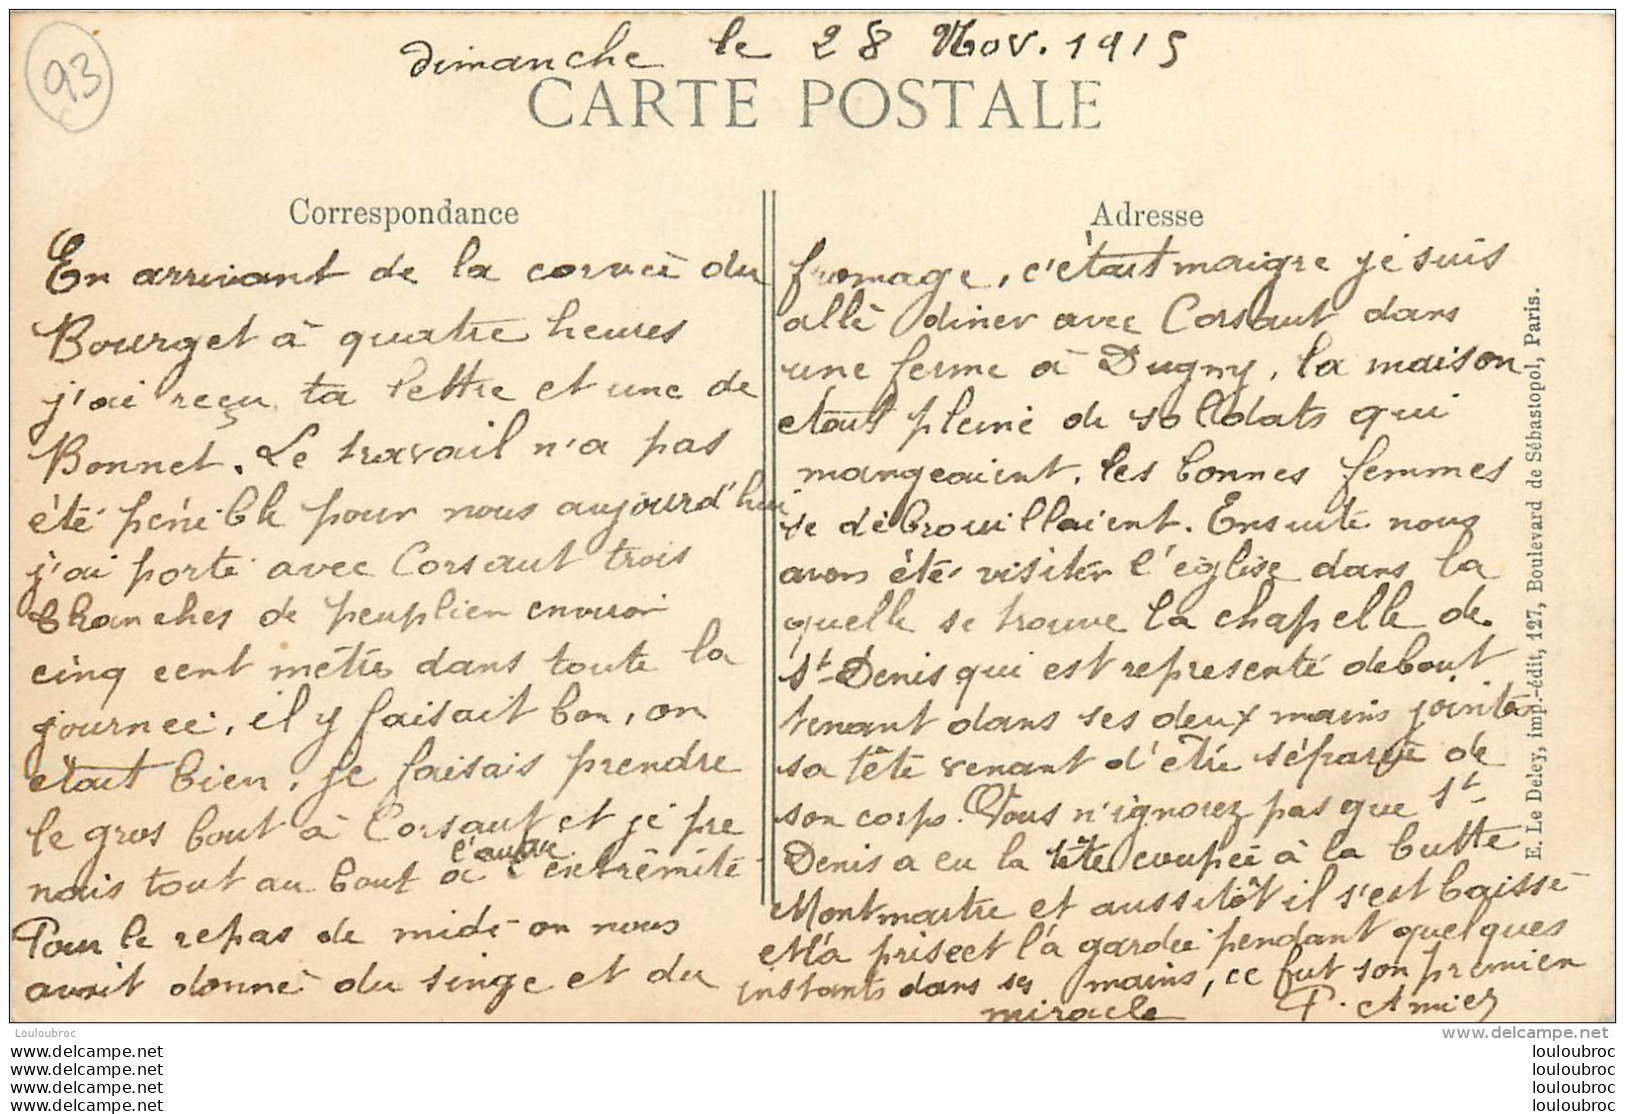 93
dimanche le 28 Nov. 1915
CARTE POSTALE
Correspondance
En arrivant de la corveé du
Bourget à quatre heures
j'ai reçu ta lettre et une de
Bonnet. Le travail n'a pas
été pénible pour nous aujourd'hui
j'ai porté avec Corsaut trois
branches de peuplier
cinq cent mètre dans toute la
journeé, il y faisait bon, on
etait bien, je faisais prendre
le gros bout à Corsaut et je pre
nais tout au bout à l'autre extrêmité
Pour le repas de midi on nous
avait donné du singe et du
Adresse
fromage, c'était maigre je suis
allé diner avec Corsaut dans
une ferme à Dugny, la maison
etait pleine de solldats qui
mangeaient, les bonnes femmes
se débrouillaient. Ensuite nous
avons été visiter l'église dans la
quelle se trouve la chapelle de
St-Denis qui est representé debout
tenant dans ses deux mains jointes
sa tête venant d'être séparée de
son corps. Vous n'ignorez pas que St-
Denis a eu la tête coupeé à la butte
Montmartre et aussitôt il s'est baissé
et l'a prise et l'a gardée pendant quelques
instants dans ses mains, ce fut son premier
miracle P. Amiez
E. Le Deley, imp.-édit, 127, Boulevard de Sébastopol, Paris.
Louloubroc
www.delcampe.net
www.delcampe.net
www.delcampe.net
www.delcampe.net
www.delcampe.net
louloubroc
louloubroc
louloubroc
louloubroc